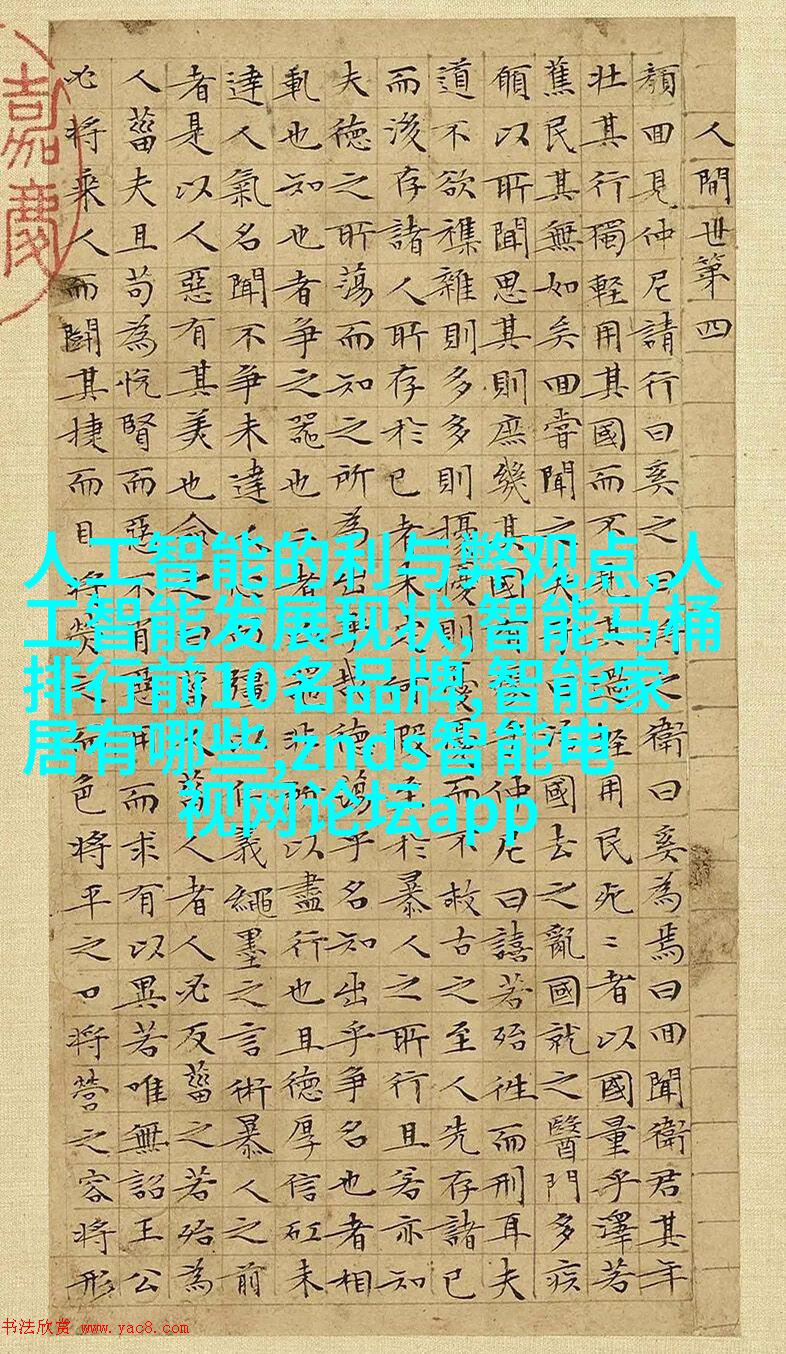 人間世第四
顏回見仲尼請行曰奚之曰將之衛曰奚為焉曰回聞衛君其年
壯其行獨輕用其國而不見其過輕用民死〻者以國量乎澤若
蕉民其無如矣回嘗聞之夫子曰治國去之亂國就之醫門多疾
願以所聞思其則庶幾其國有瘳乎仲尼曰譆若殆往而刑耳夫
道不欲襍雜則多多則擾擾則憂憂而不救古之至人先存諸已
而後存諸人所存於已者未定何暇至於暴人之所行且若亦知
夫德之所蕩而知之所為出乎哉德蕩乎名知出乎爭名也者相
軋也知也者爭之器也二者凶器非所以盡行也且德厚信矼未
達人氣名聞不爭未達人心而彊以仁義繩墨之言術暴人之前
者是以人惡有其美也命之曰菑人菑人者人必反菑之若殆為
人菑夫且苟為悅賢而惡不肖惡用而求有以異若唯無詔王公
必將乘人而鬭其捷而目將熒之而色將平之口將營之容將形
嘉慶
人工智能的利与弊观点,人
工智能发展现状,智能马桶
排行前10名品牌,智能家
居有哪些,znds智能电
视网论坛app
书法欣赏 www.yac8.com